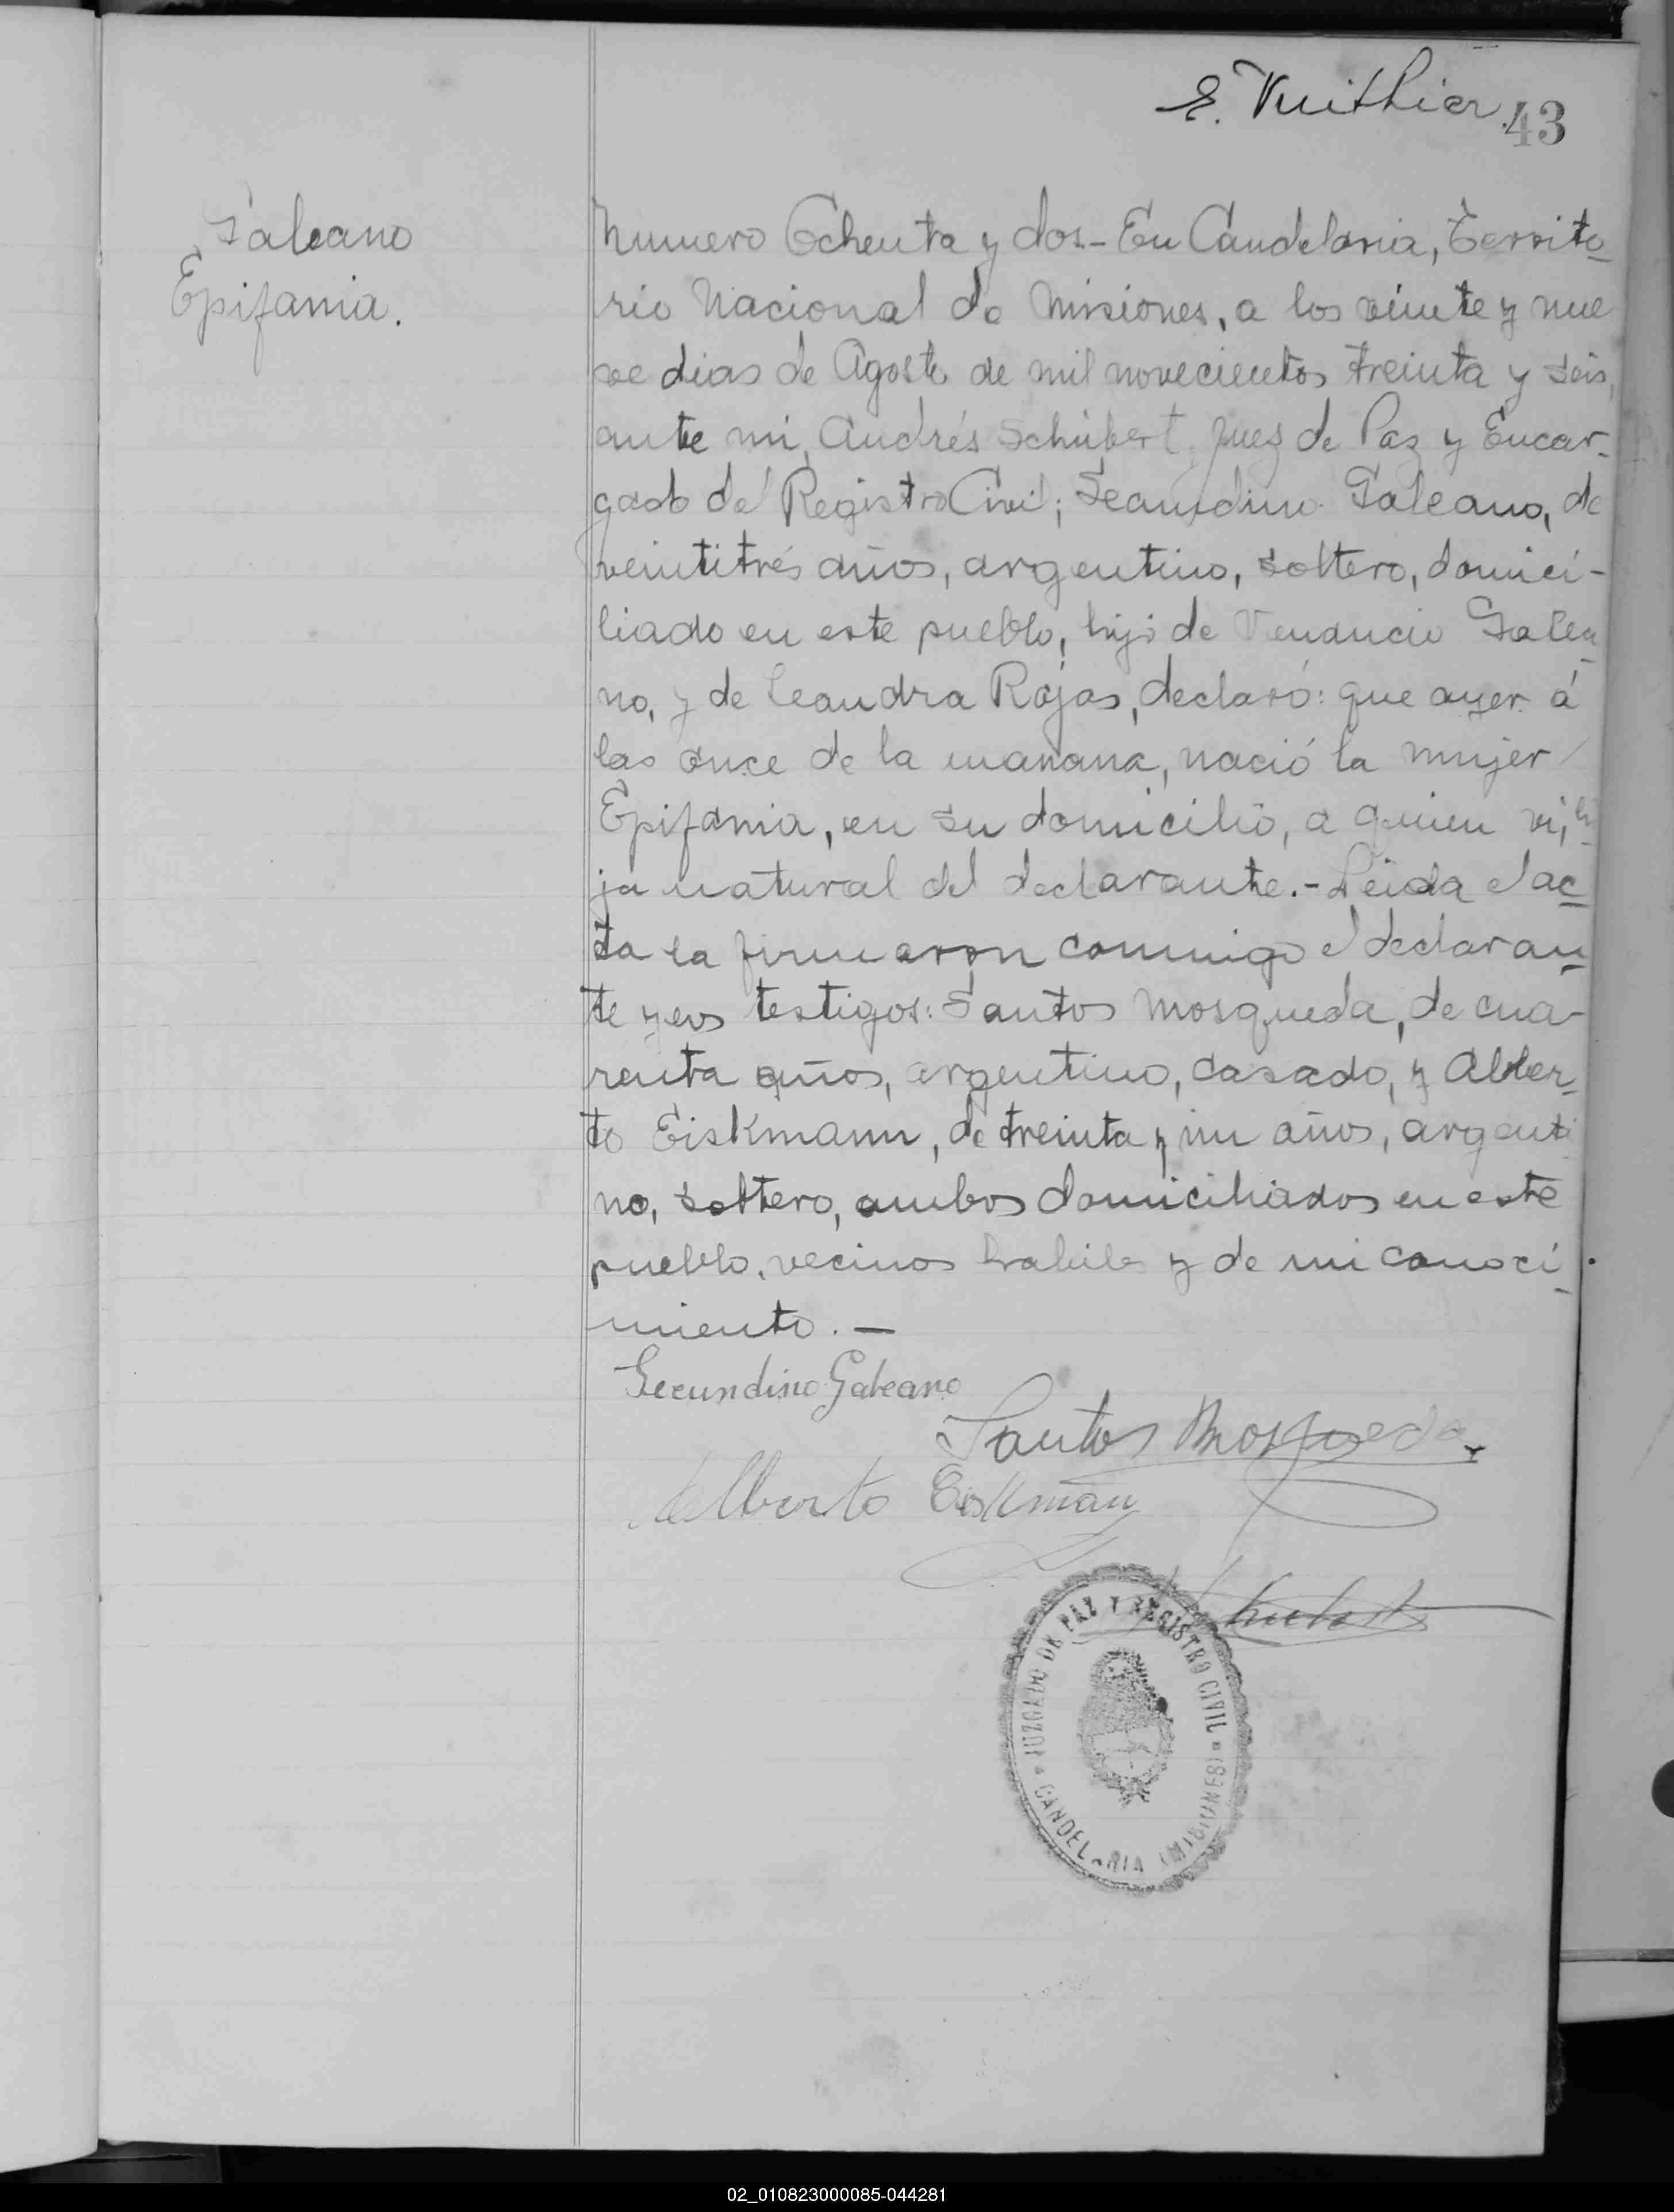 E. Vuithier.
43
Galeano
Epifania.
Numero Ochenta y dos.- En Candelaria, Territo
rio Nacional de Misiones, a los veinte y nue
ve dias de Agosto de mil novecientos treinta y seis,
ante mi, Andrés Schubert, Juez de Paz y Encar-
gado del Registro Civil; Secundino Galeano, de
veintitrés años, argentino, soltero, domici-
liado en este pueblo, hijo de Venancio Galea
no, y de Leandra Rojas, declaró: que ayer á
las once de la manana, nació la mujer
Epifania, en su domicilio, a quien vi, hi
ja natural del declarante.- Leida el ac
ta la firmaron conmigo el declaran
te y los testigos: Santos Mosqueda, de cua-
renta años, argentino, casado, y Alber
to Eiskmann, de treinta y un años, argenti
no, soltero, ambos domiciliados en este
pueblo, vecinos habiles y de mi conoci
miento. —
Secundino Galeano
Santos Mosqueda
Alberto Eiskman
Schubert
JUZGADO DE PAZ Y REGISTRO CIVIL
CANDELARIA (MISIONES)
02_010823000085-044281